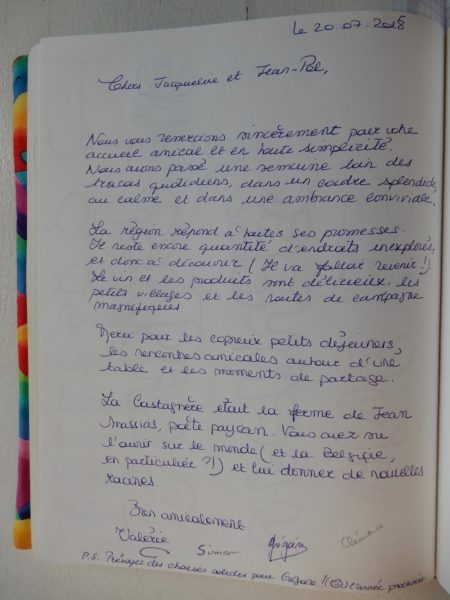 Le 20.07.2018
Chers Jacqueline et Jean-Pol,
Nous vous remercions sincèrement pour votre
accueil amical et en toute simplicité.
Nous avons passé une semaine loin des
tracas quotidiens, dans un cadre splendide,
au calme et dans une ambiance conviviale.
La région répond à toutes ses promesses.
Il reste encore quantité d'endroits inexplorés,
et donc à découvrir (Il va falloir revenir !).
Le vin et les produits sont délicieux. Les
petits villages et les routes de campagne
magnifiques
Merci pour les copieux petits déjeuners,
les rencontres amicales autour d'une
table et les moments de partage.
La Castagnère était la ferme de Jean
Massias, poète paysan. Vous avez su
l'ouvrir sur le monde (et la Belgique,
en particulier ?!) et lui donner de nouvelles
racines.
Bien amicalement
Valérie
Simon
Grégoire
Clémence
P.S. Prévoyez des chaises solides pour Grégoire !! l'année prochaine.